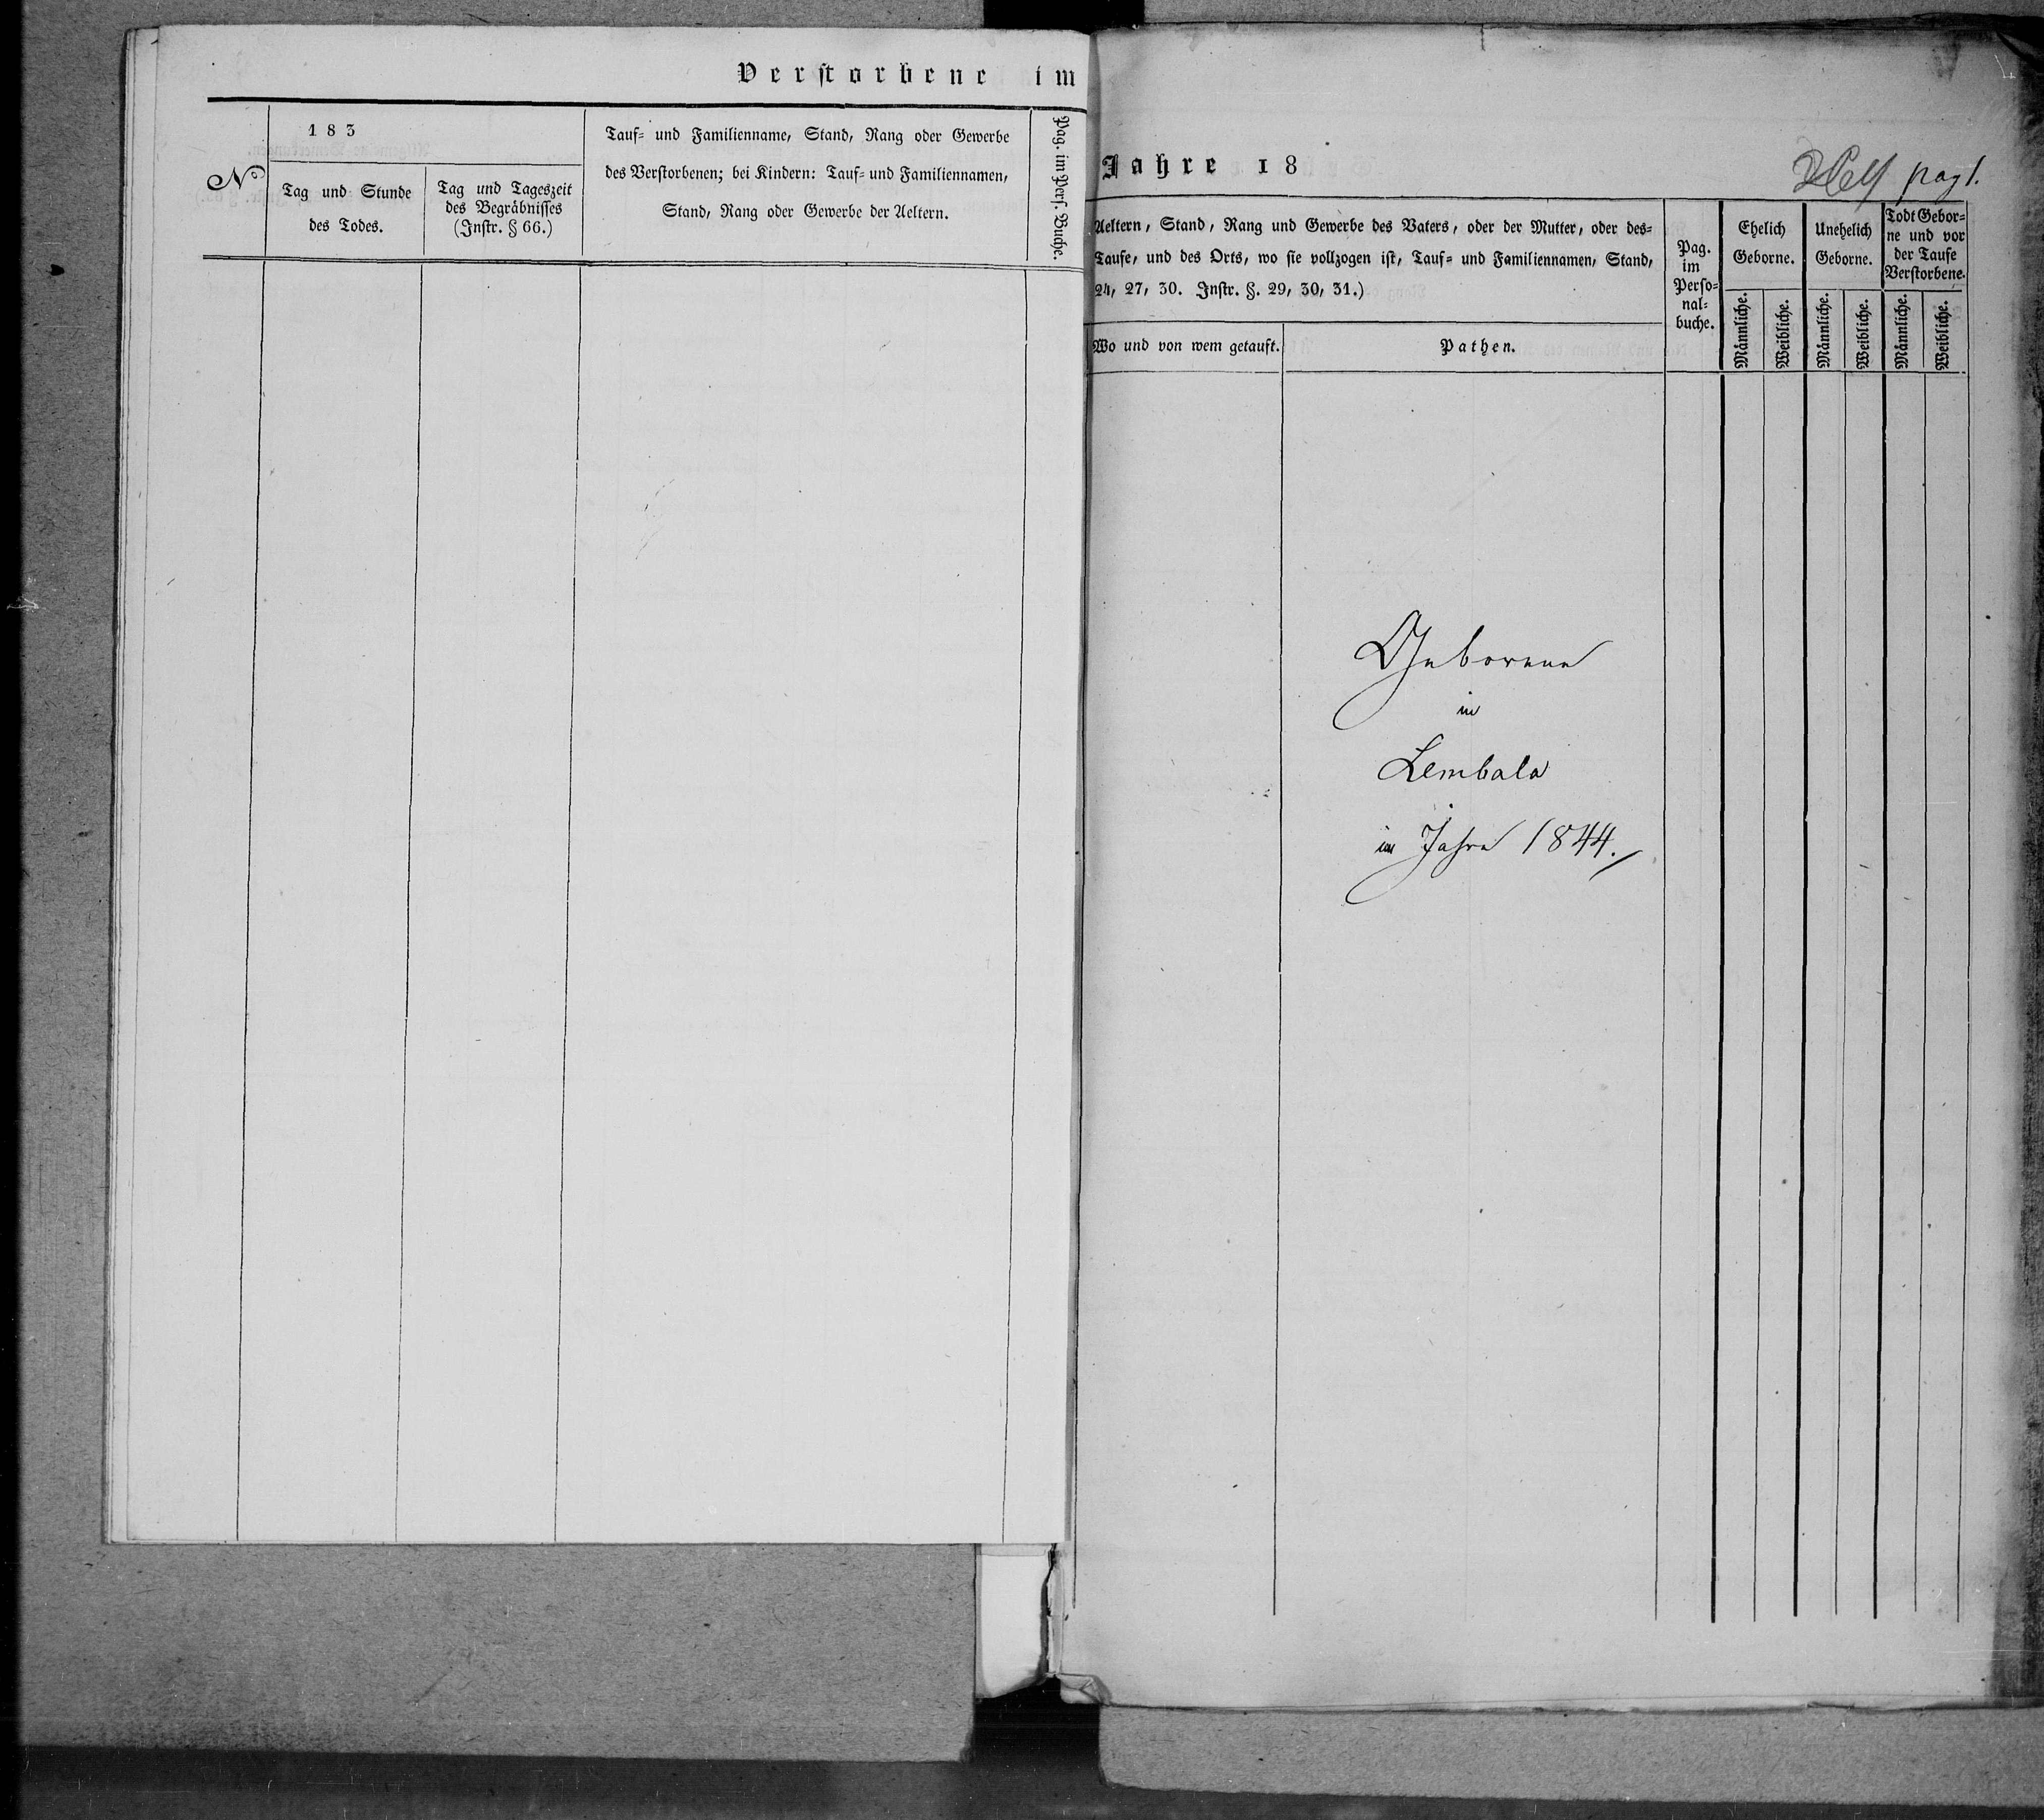 Verstorbene im
No
183
Tag und Stunde
des Todes.
Tag und Tageszeit
des Begräbnisses
(Instr. § 66.)
Tauf- und Familienname, Stand, Rang oder Gewerbe
des Verstorbenen; bei Kindern: Tauf- und Familiennamen,
Stand, Rang oder Gewerbe der Aeltern.
Pag. im Pers. Buche.
Jahre 18
pag 1.
Aeltern, Stand, Rang und Gewerbe des Vaters, oder der Mutter, oder des-
Taufe, und des Orts, wo sie vollzogen ist, Tauf- und Familiennamen, Stand,
24, 27, 30. Instr. §. 29, 30, 31.)
Wo und von wem getauft.
Pathen.
Pag.
im
Perso-
nal-
buche.
Ehelich
Geborne.
Unehelich
Geborne.
Todt Gebor-
ne und vor
der Taufe
Verstorbene.
Männliche.
Weibliche.
Männliche.
Weibliche.
Männliche.
Weibliche.
Geborene
in
Lembala
im Jahre 1844.